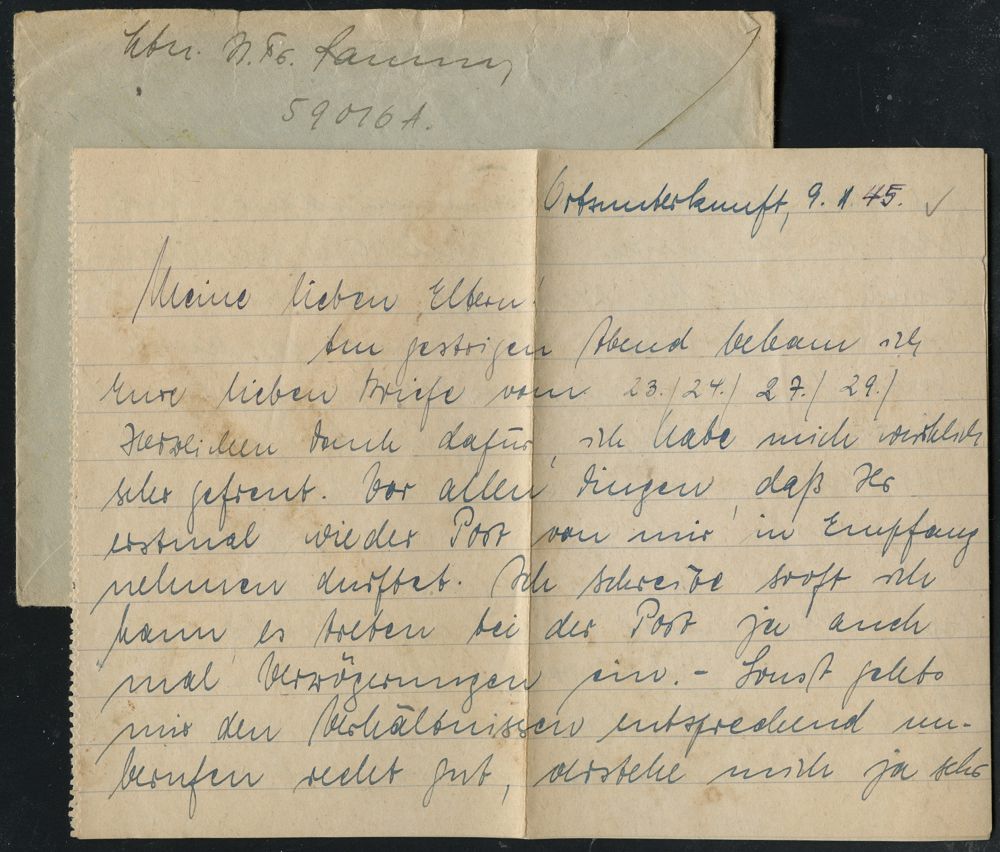 59016 A.
Ortsunterkunft, 9. 1. 45.
Meine lieben Eltern!
Am gestrigen Abend bekam ich
Eure lieben Briefe vom 23./24./27./29./
Herzlichen Dank dafür, ich habe mich wirklich
sehr gefreut. Vor allen Dingen, daß Ihr
erstmal wieder Post von mir in Empfang
nehmen durftet. Ich schreibe sooft ich
kann, es treten bei der Post ja auch
mal Verzögerungen ein. - Sonst gehts
mir den Verhältnissen entsprechend un-
berufen recht gut, verstehe mich ja sehr